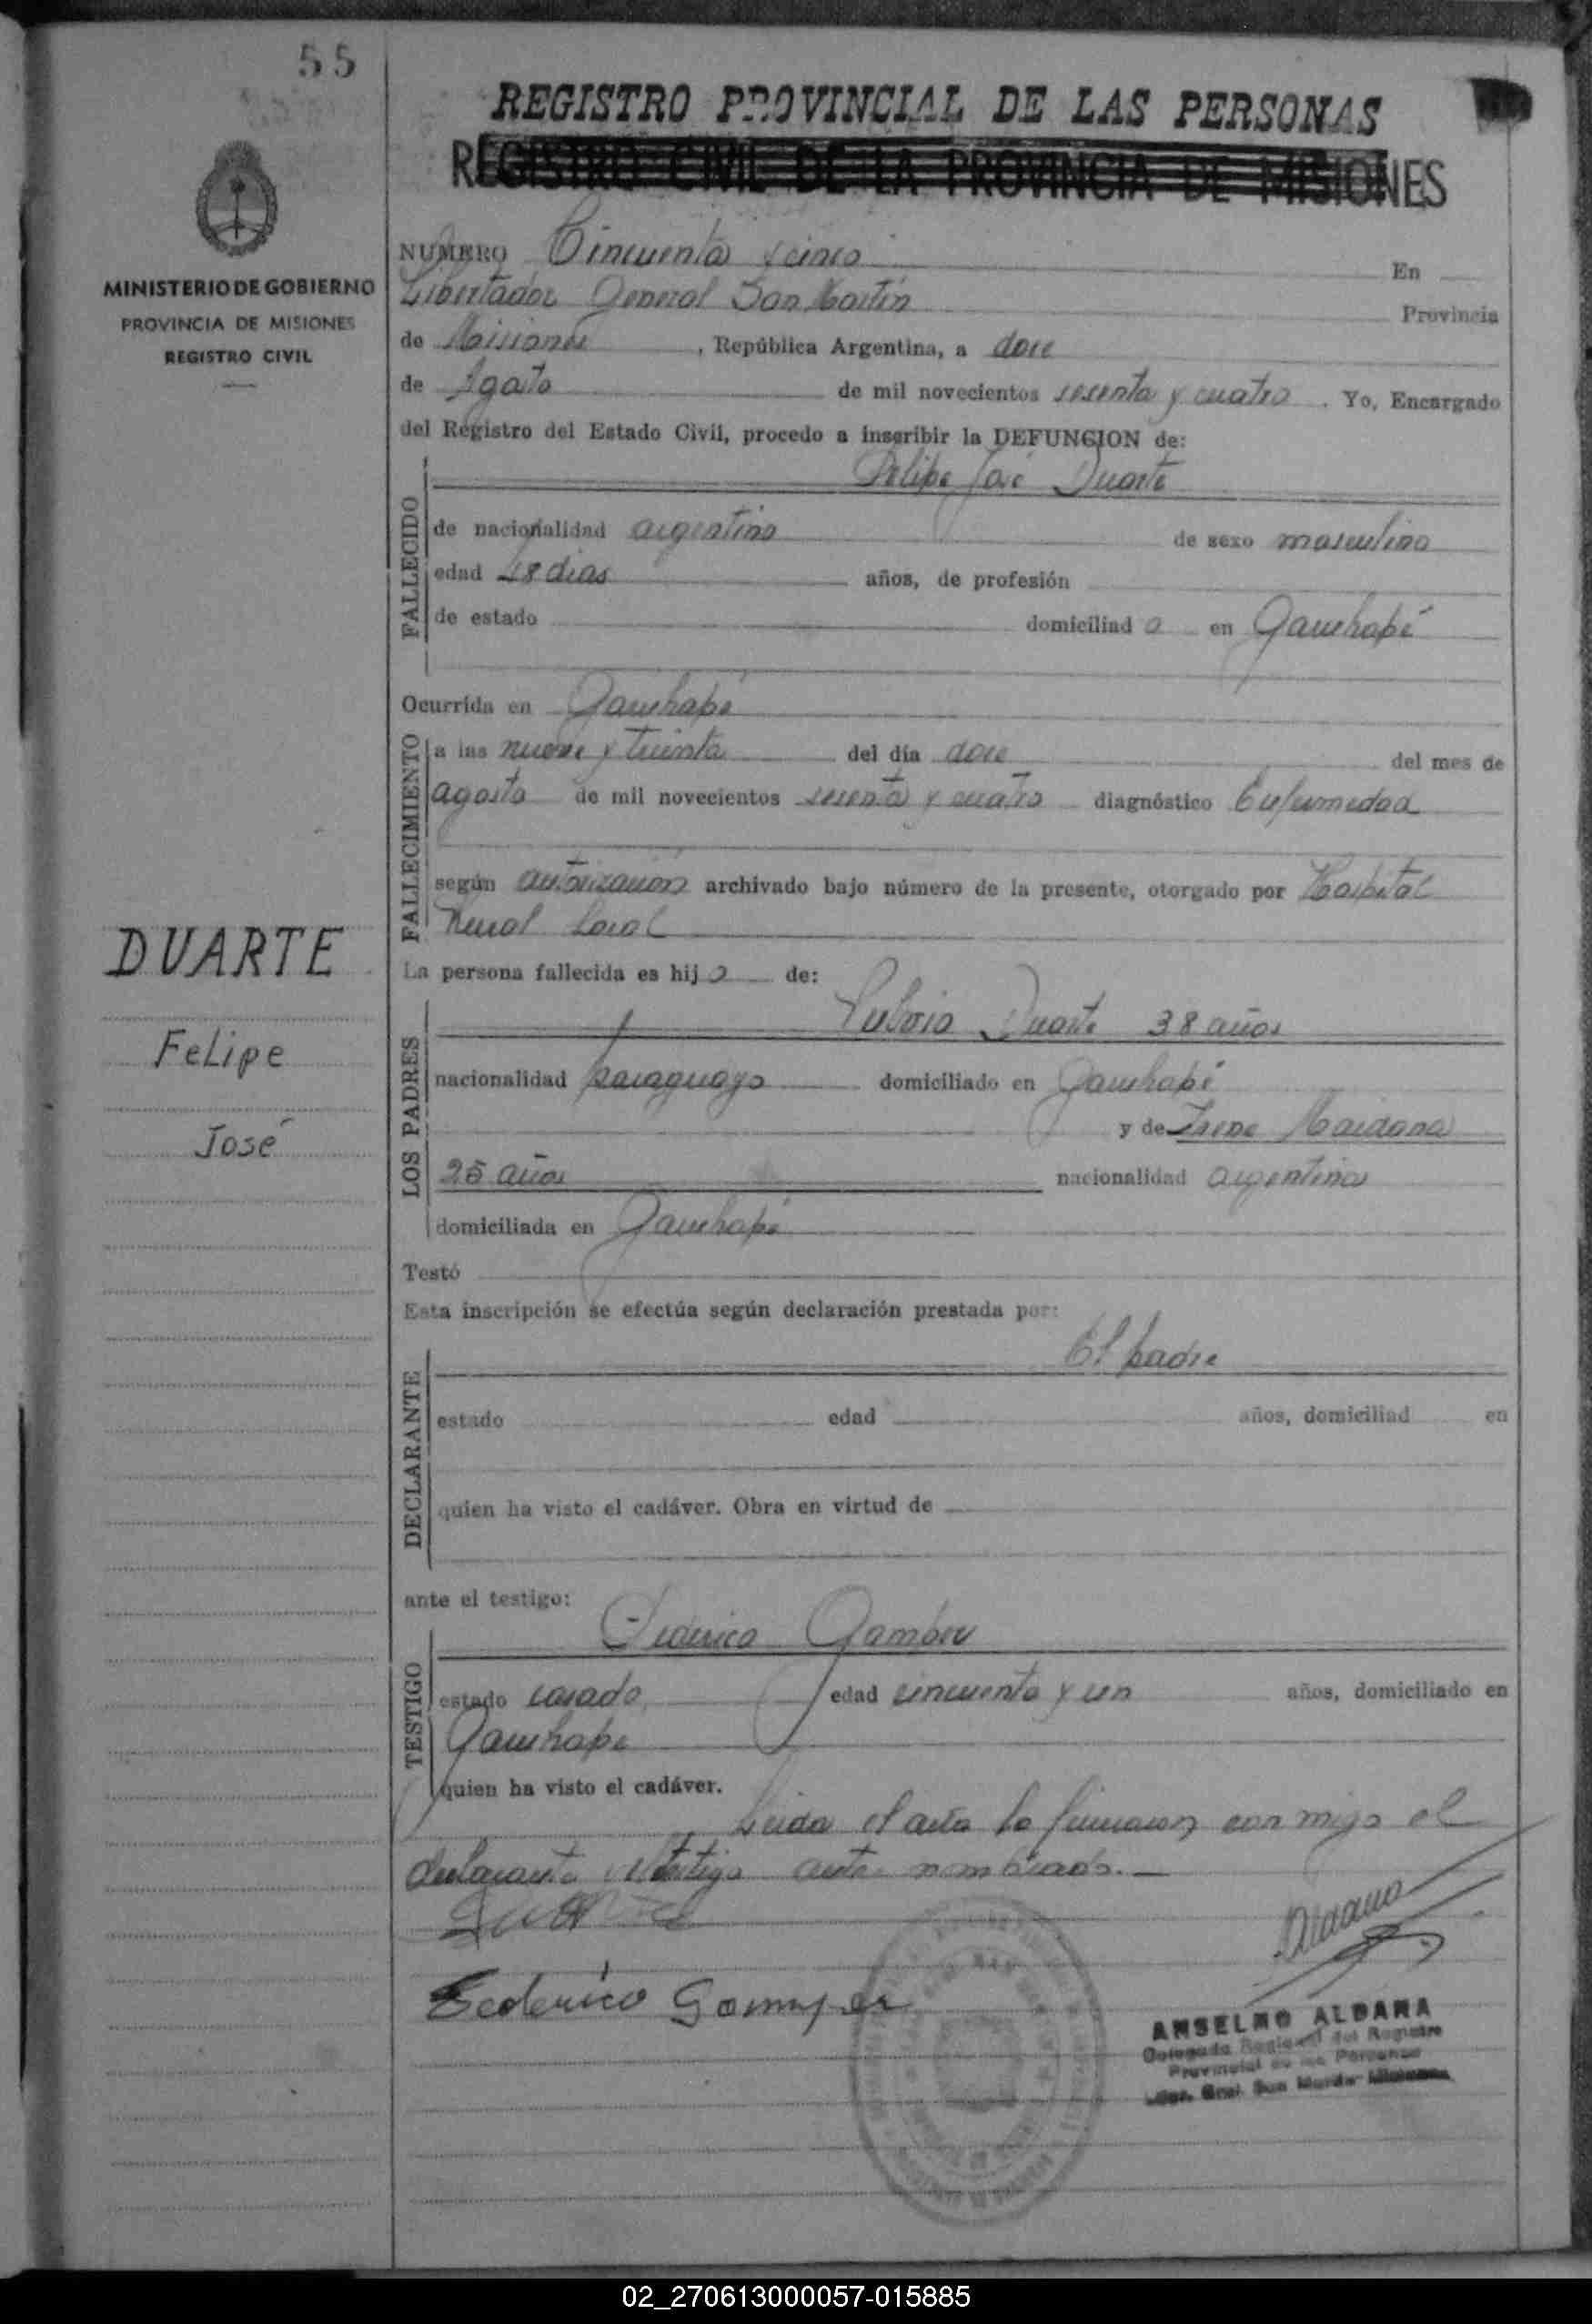 55
REGISTRO PROVINCIAL DE LAS PERSONAS
REGISTRO CIVIL DE LA PROVINCIA DE MISIONES
MINISTERIO DE GOBIERNO
PROVINCIA DE MISIONES
REGISTRO CIVIL
NUMERO Cincuenta y cinco En
Libertador General San Martín Provincia
de Misiones, República Argentina, a doce
de Agosto de mil novecientos sesenta y cuatro. Yo, Encargado
del Registro del Estado Civil, procedo a inscribir la DEFUNCION de:
FALLECIDO
Felipe José Duarte
de nacionalidad argentino de sexo masculino
edad 18 dias años, de profesión
de estado domiciliad o en Garuhapé
Ocurrida en Garuhapé
FALLECIMIENTO
a las nueve y treinta del día doce del mes de
agosto de mil novecientos sesenta y cuatro diagnóstico Enfermedad
según autorización archivado bajo número de la presente, otorgado por Hospital
Rural Local
DUARTE
Felipe
José
La persona fallecida es hij o de:
LOS PADRES
Duarte 38 años
nacionalidad paraguayo domiciliado en Garuhapé
y de Irene Maidana
25 años nacionalidad argentina
domiciliada en Garuhapé
Testó
Esta inscripción se efectúa según declaración prestada por:
DECLARANTE
El padre
estado edad años, domiciliad en
quien ha visto el cadáver. Obra en virtud de
ante el testigo:
TESTIGO
Federico
estado casado edad cincuenta y un años, domiciliado en
Garuhape
quien ha visto el cadáver.
Leida el acta la firmaron con migo el
declarante y testigo antes nombrado.
Aldana
Federico
ANSELMO ALDANA
Delegado Regional del Registro
Provincial de las Personas
Gral. San Martín Misiones
02_270613000057-015885